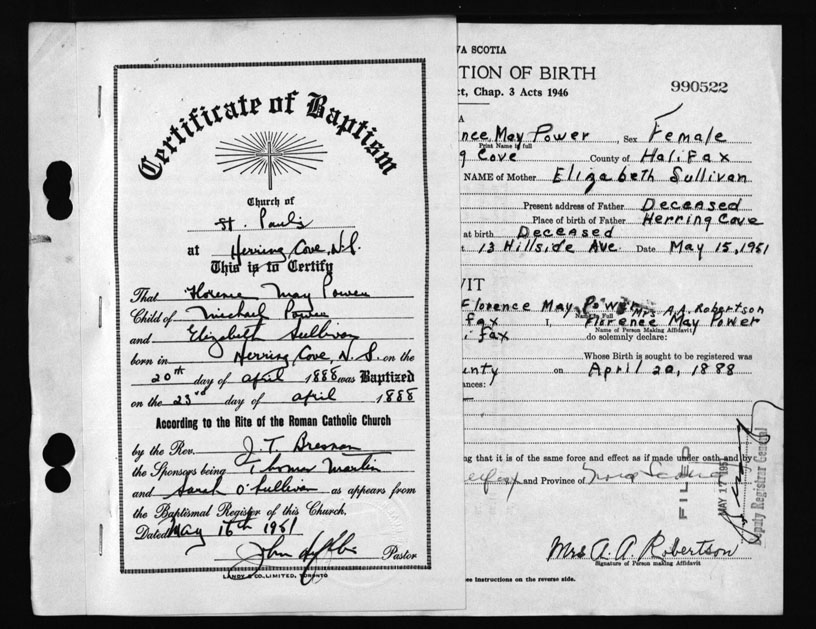 Certificate of Baptism
Church of
St. Paul's
at Herring Cove, N.S.
This is to Certify
That Florence May Power
Child of Michael Power
and Elizabeth Sullivan
born in Herring Cove, N.S. on the
20th day of April 1888 was Baptized
on the 23rd day of April 1888
According to the Rite of the Roman Catholic Church
by the Rev. J. T. Bresnan
the Sponsors being Thomas Martin
and Sarah O'Sullivan as appears from
the Baptismal Register of this Church.
Dated May 16th 1951
John Pastor
LANDY & CO. LIMITED, TORONTO
VA SCOTIA
TION OF BIRTH
ct, Chap. 3 Acts 1946
990522
A
nce May Power, Sex Female
Print Name in full
g Cove County of Halifax
NAME of Mother Elizabeth Sullivan
Present address of Father Deceased
Place of birth of Father Herring Cove
at birth Deceased
t 13 Hillside Ave. Date May 15, 1951
VIT
Florence May Power Mrs A.A. Robertson
Name in Full
fax I, Florence May Power
Name of Person Making Affidavit
ifax do solemnly declare:
Whose Birth is sought to be registered was
unty on April 20, 1888
ances:
ng that it is of the same force and effect as if made under oath and by
alifax and Province of Nova Scotia
FILED
MAY 17 195
Deputy Registrar General
Mrs A. A. Robertson
Signature of Person making Affidavit
ee instructions on the reverse side.